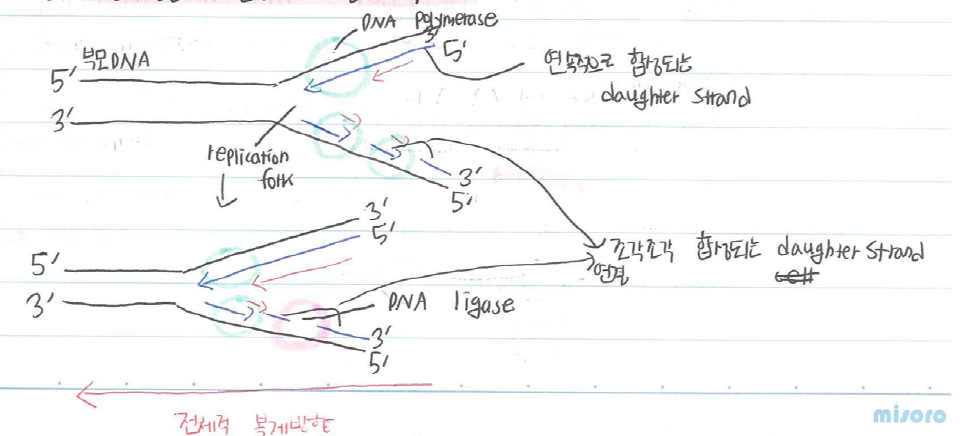 DNA polymerase
3'
5'
부모DNA
5'
3'
연속적으로 합성되는
daughter strand
replication
fork
3'
5'
3'
5'
5'
3'
조각조각 합성되는 daughter strand
연결
cell
DNA ligase
3'
5'
전체적 복제방향
misoro